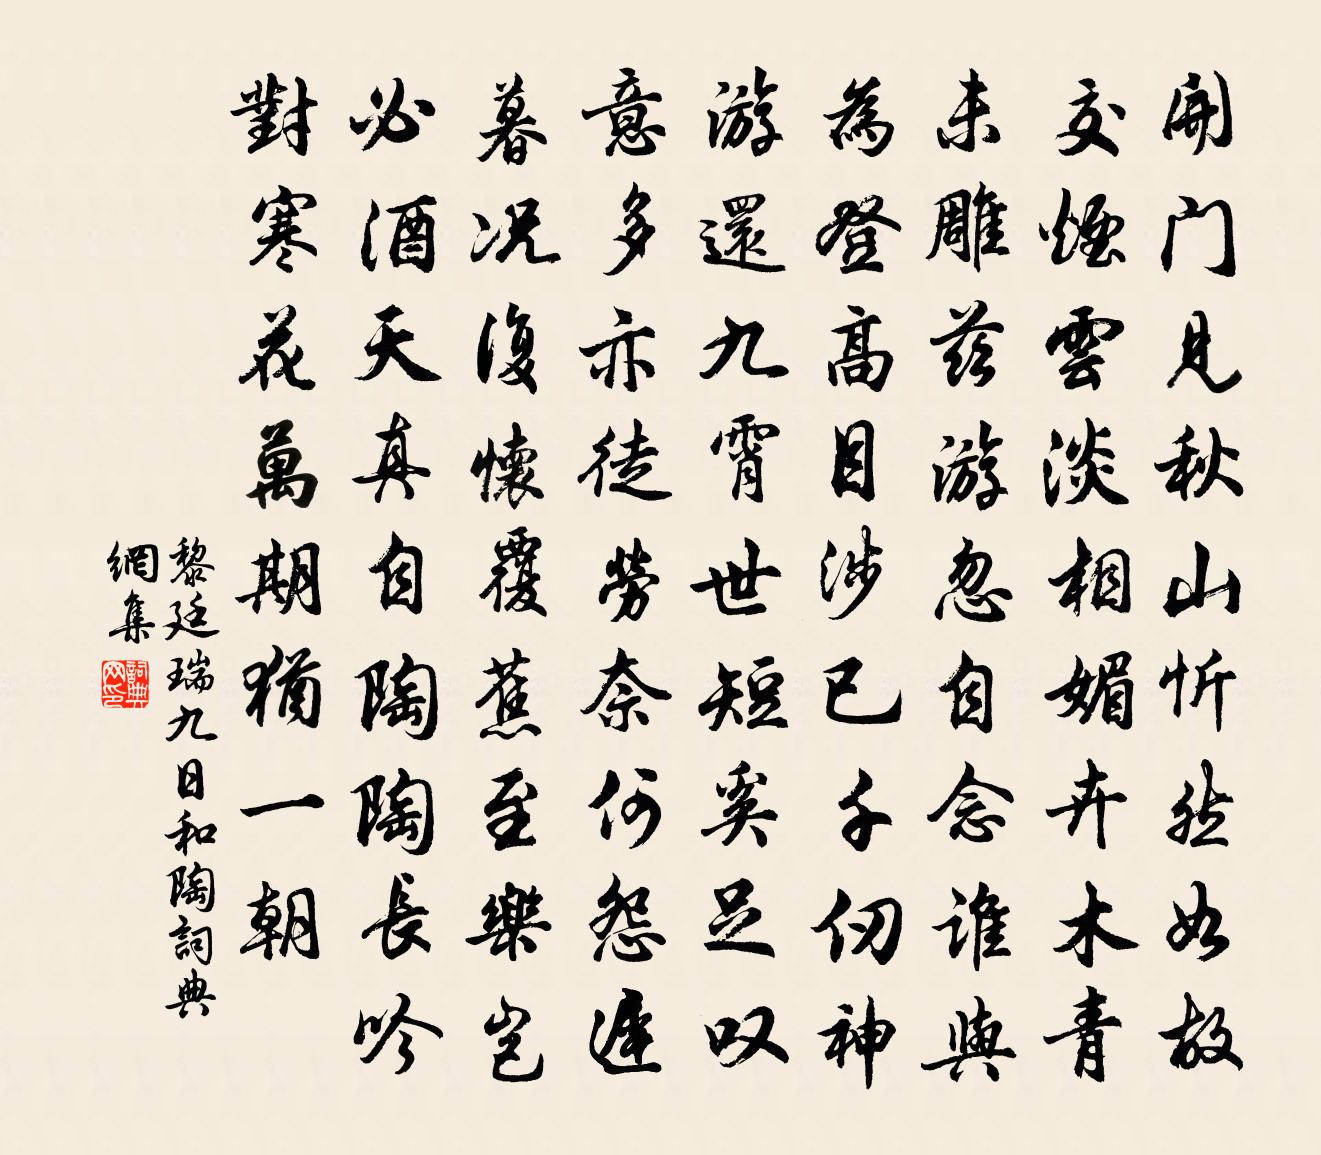 開门見秋山忻然如故
交煙雲淡相媚卉木青
未雕茲游忽自念誰與
為登高目涉已千仞神
游還九霄世短奚足叹
意多亦徒勞奈何怨遲
暮况復懷覆蕉至樂豈
必酒天真自陶陶長吟
對寒花萬期猶一朝
黎廷瑞九日和陶詞典
網集
詞典网印